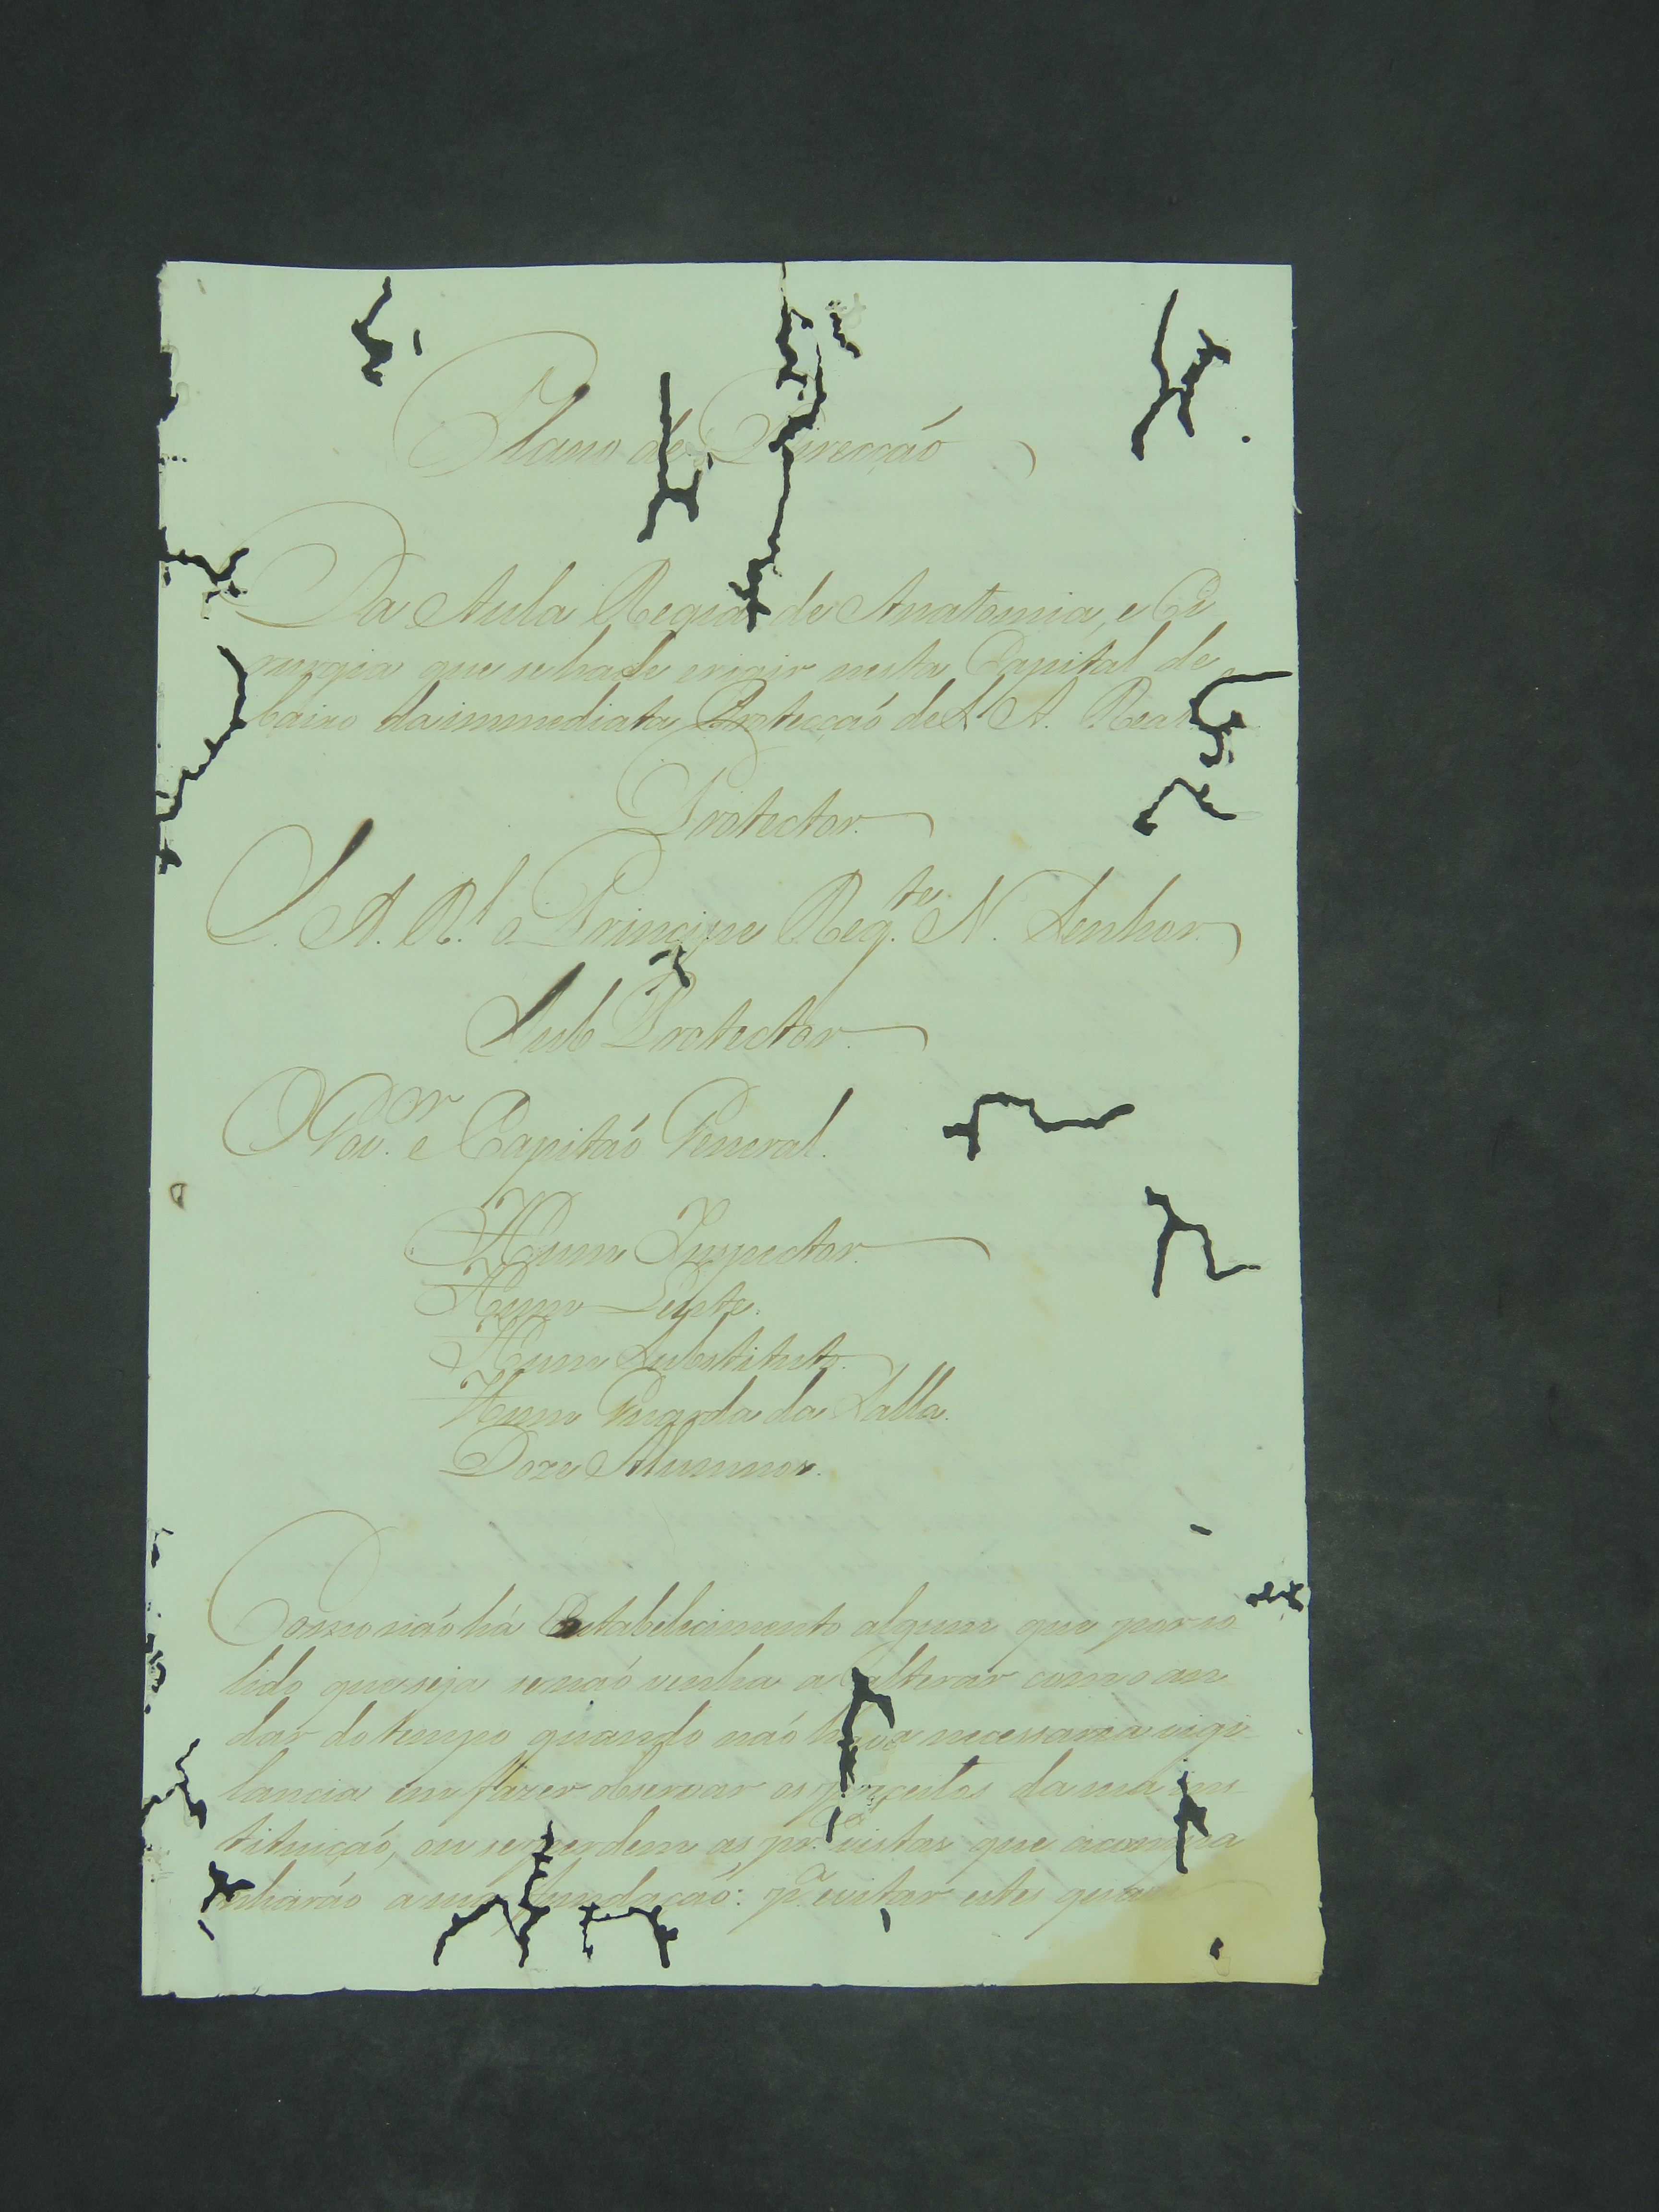 Plano de Direcçaó
Da Aula Regia de Anatomia, e Ci
rurgia que sehade erigir nesta Capital de
baixo daimmediata Protecçaó deS. A. Real
Protector.
S. A. R.l o Principe Reg.te N. Senhor.
Sub Protector.
O Gov.dor e Capitaó General.
Hum Inspector.
Hum Lente.
Hum Substituto.
Hum Guarda da Salla.
Doze Alumnos.
Como naó há Estabelecimento algum que por so
lido que seja senaó venha a alterar como an
dar do tempo quando naó haja necessaria vigi
lancia em fazer observar os preceitos da sua ins
tituiçaó, ou se perdem as pr.as vistas que acompa
nharaó a sua fundaçaó: p.a evitar estes